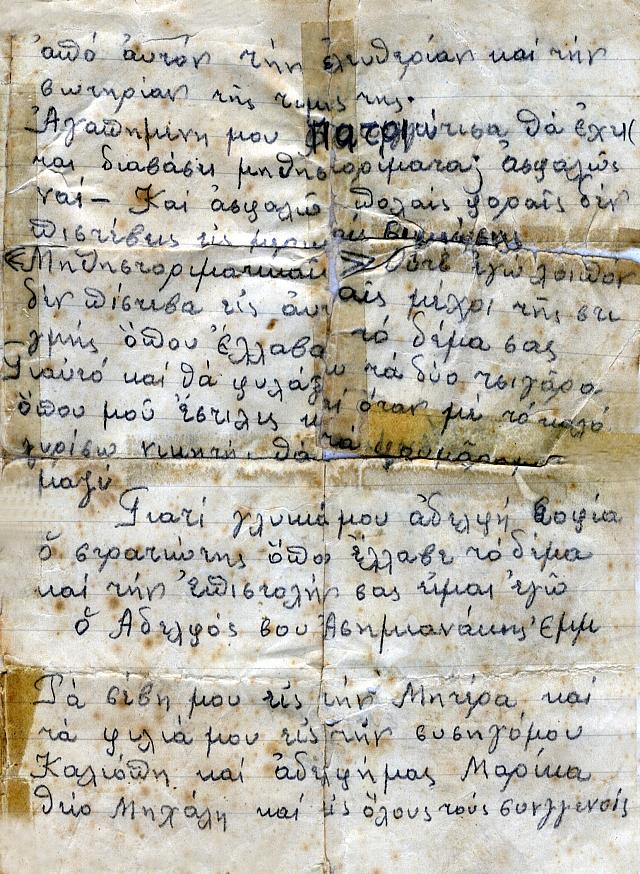 ἀπό ἀυτόν τήν ἐλευθερίαν καί τήν
σωτηρίαν τῆς τιμις της.
Ἀγαπημένη μου πατριώτισα θά ἔχις
καί διαβάσι μηθηστορίματα; ἀσφαλῶς
ναί – Καί ἀσφαλῶς πολαίς φοραῖς δέν
πιστέβεις εἰς
«Μηθηστοριματικαῖς» Οὔτε ἐγώ λοιπον
δέν πίστεβα εἰς ἀυταίς μέχρι τῆς στι
γμής ὅπου ἔλλαβα τό δέμα σας
Γιαὐτό καί θά φυλάξω τά δύο τσιγάρα
ὅπου μοῦ ἔστιλες καί ὅταν μέ τό καλό
γυρίσω νικητής θά τα φουμάρωμε
μαζύ
Γιατί γλυκιά μου ἀδελφή Σοφία
ὁ στρατιώτης ὅπου ἔλλαβε τό δέμα
καί τήν ἐπιστολήν σας εἶμαι ἐγώ
ὁ Ἀδελφός σου Ἀσημιανάκης Ἐμμ
Τά σέβη μου εἰς τήν Μητέρα καί
τά φιλιά μου εἰς τήν συσηγόμου
Καλιόπη καί ἀδελφήμας Μαρίκα
θείο Μηχάλη καί εἰς ὅλους τούς συνγγενείς